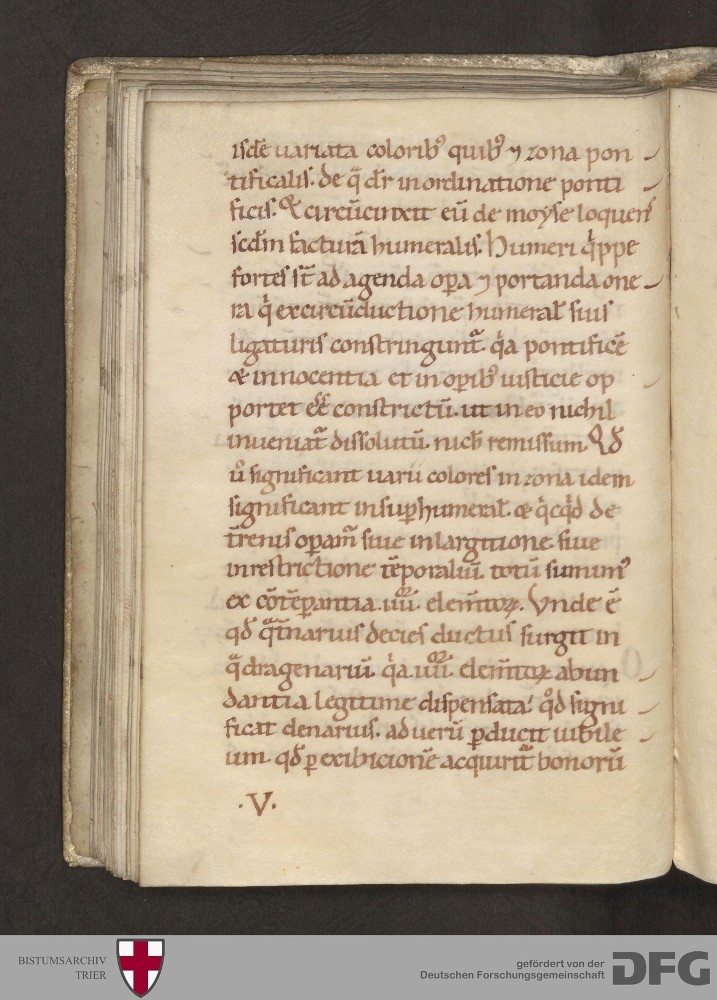 isdē uariata coloribꝰ quibꝰ ⁊ zona pon
tificalis. de q̄ dr̄ in ordinatione ponti
ficis. Et circūcinxit eū de moẏse loquens
scdm̄ facturā humeralis. Humeri qⁱppe
fortes st̄ ad agenda oꝑa ⁊ portanda one
ra qⁱ ex circūductione humeral̄ suis
ligaturis constringunt᷑. qⁱa pontificē
& innocentia et in oꝑibꝰ iusticie op
portet eē constrictū. ut in eo nichil
inueniat᷑ dissolutū. nich̄ remissum. Qd̄
ů significant uarii colores in zona idem
significant in suꝑhumeral̄. & qⁱcqⁱd de
t̄renis oꝑam᷑ siue in largitione. siue
in restrictione tēporaliū. totū sumimꝰ
ex cōtēꝑantia .iiii. elem̄toꝝ. Vnde ē
qd̄ qᷓt̄narius decies ductus surgit in
qᷓdragenariū. qⁱa .iiii. elem̄toꝝ abun
dantia legitime dispensata. qd̄ signi
ficat denarius. ad uerū ꝑducit iubile
um. qd̄ ꝑ exibicionē acquirit᷑ bonorū
.V.
BISTUMSARCHIV
TRIER
gefördert von der
Deutschen Forschungsgemeinschaft
DFG